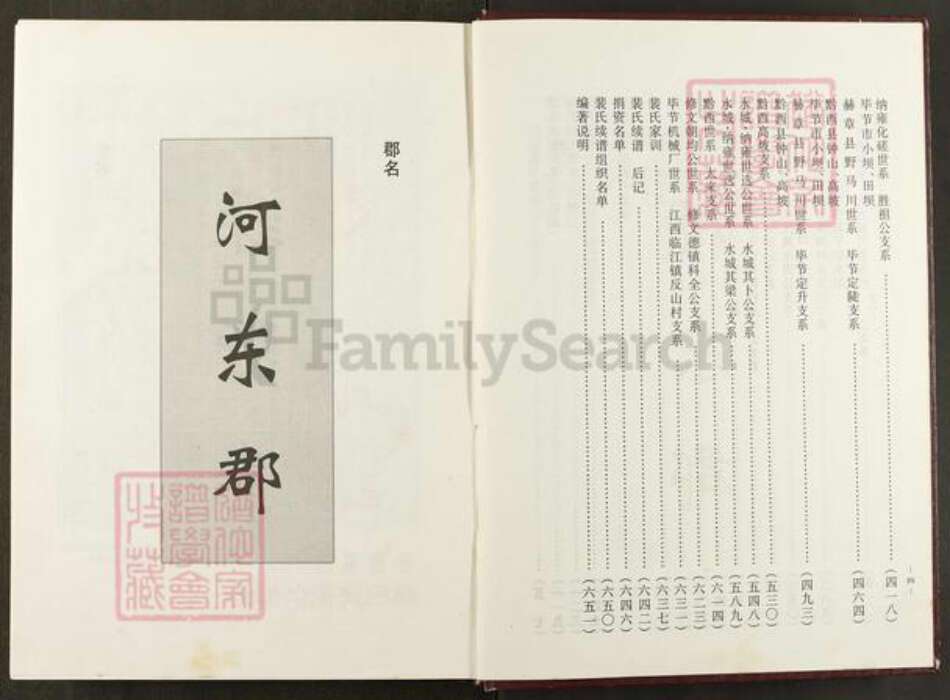 纳雍化磋世系 胜祖公支系……(四一八)
毕节市小坝、田坝
赫章县野马川世系 毕节定陡支系……(四六四)
黔西县钟山、高坡
毕节市小坝、田坝
赫章县野马川世系 毕节定升支系……(四九三)
黔西县钟山、高坡
黔西高坡支系……(五三〇)
水城·纳雍世选公世系 水城其卜公支系……(五四八)
水城·纳雍世选公世系 水城其梁公支系……(五八九)
黔西世系 太来支系……(六一四)
修文朝均公世系 修文德镇科全公支系……(六二三)
毕节机械厂世系 江西临江镇反山村支系……(六三一)
裴氏家训……(六三七)
裴氏续谱 后记……(六四二)
捐资名单……(六四六)
裴氏续谱组织名单……(六五〇)
编著说明……(六五一)
郡名
河东郡
FamilySearch